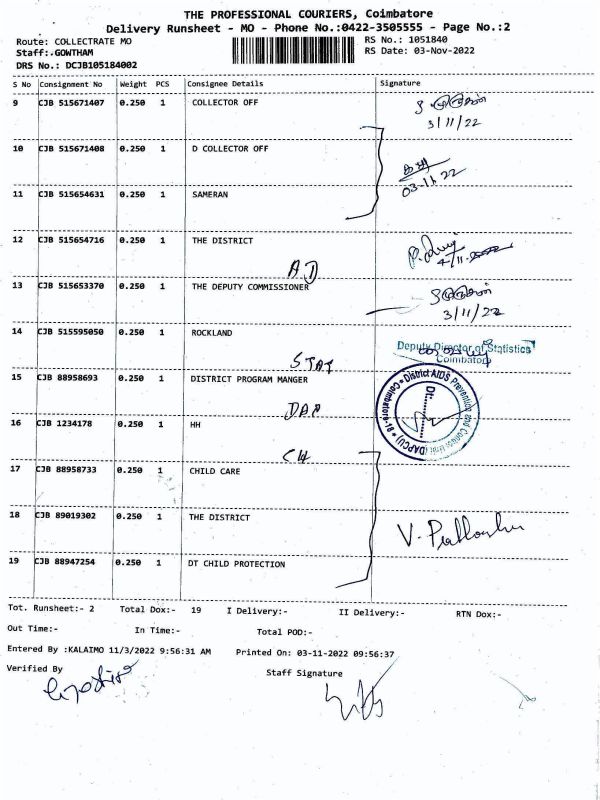 THE PROFESSIONAL COURIERS, Coimbatore
Delivery Runsheet - MO - Phone No.:0422-3505555 - Page No.:2
Route: COLLECTRATE MO
RS No.: 1051840
Staff:.GOWTHAM
RS Date: 03-Nov-2022
DRS No.: DCJB105184002
S No Consignment No Weight PCS Consignee Details Signature
9 CJB 515671407 0.250 1 COLLECTOR OFF
3/11/22
10 CJB 515671408 0.250 1 D COLLECTOR OFF
03-11-22
11 CJB 515654631 0.250 1 SAMERAN
12 CJB 515654716 0.250 1 THE DISTRICT
AD
13 CJB 515653370 0.250 1 THE DEPUTY COMMISSIONER
3/11/22
14 CJB 515595050 0.250 1 ROCKLAND
Deputy Director of Statistics
Coimbatore
STAT
15 CJB 88958693 0.250 1 DISTRICT PROGRAM MANGER
District AIDS Prevention and Control Unit (DAPCU)
Coimbatore-18
16 CJB 1234178 0.250 1 HH
CH
17 CJB 88958733 0.250 1 CHILD CARE
18 CJB 89019302 0.250 1 THE DISTRICT
19 CJB 88947254 0.250 1 DT CHILD PROTECTION
Tot. Runsheet:- 2 Total Dox:- 19 I Delivery:- II Delivery:- RTN Dox:-
Out Time:- In Time:- Total POD:-
Entered By :KALAIMO 11/3/2022 9:56:31 AM Printed On: 03-11-2022 09:56:37
Verified By
Staff Signature